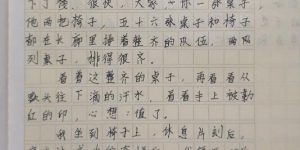 下了楼。很快，大家你一张桌子，
他两把椅子，五十六张桌子和椅子
都在长廊里排着整齐的队伍，两两
列桌子，排得很齐。
看着这整齐的桌子，再看看从
额头往下滴的汗水，看看手上被勒
红的印，心想：值了。
我坐到椅子上，休息片刻后，